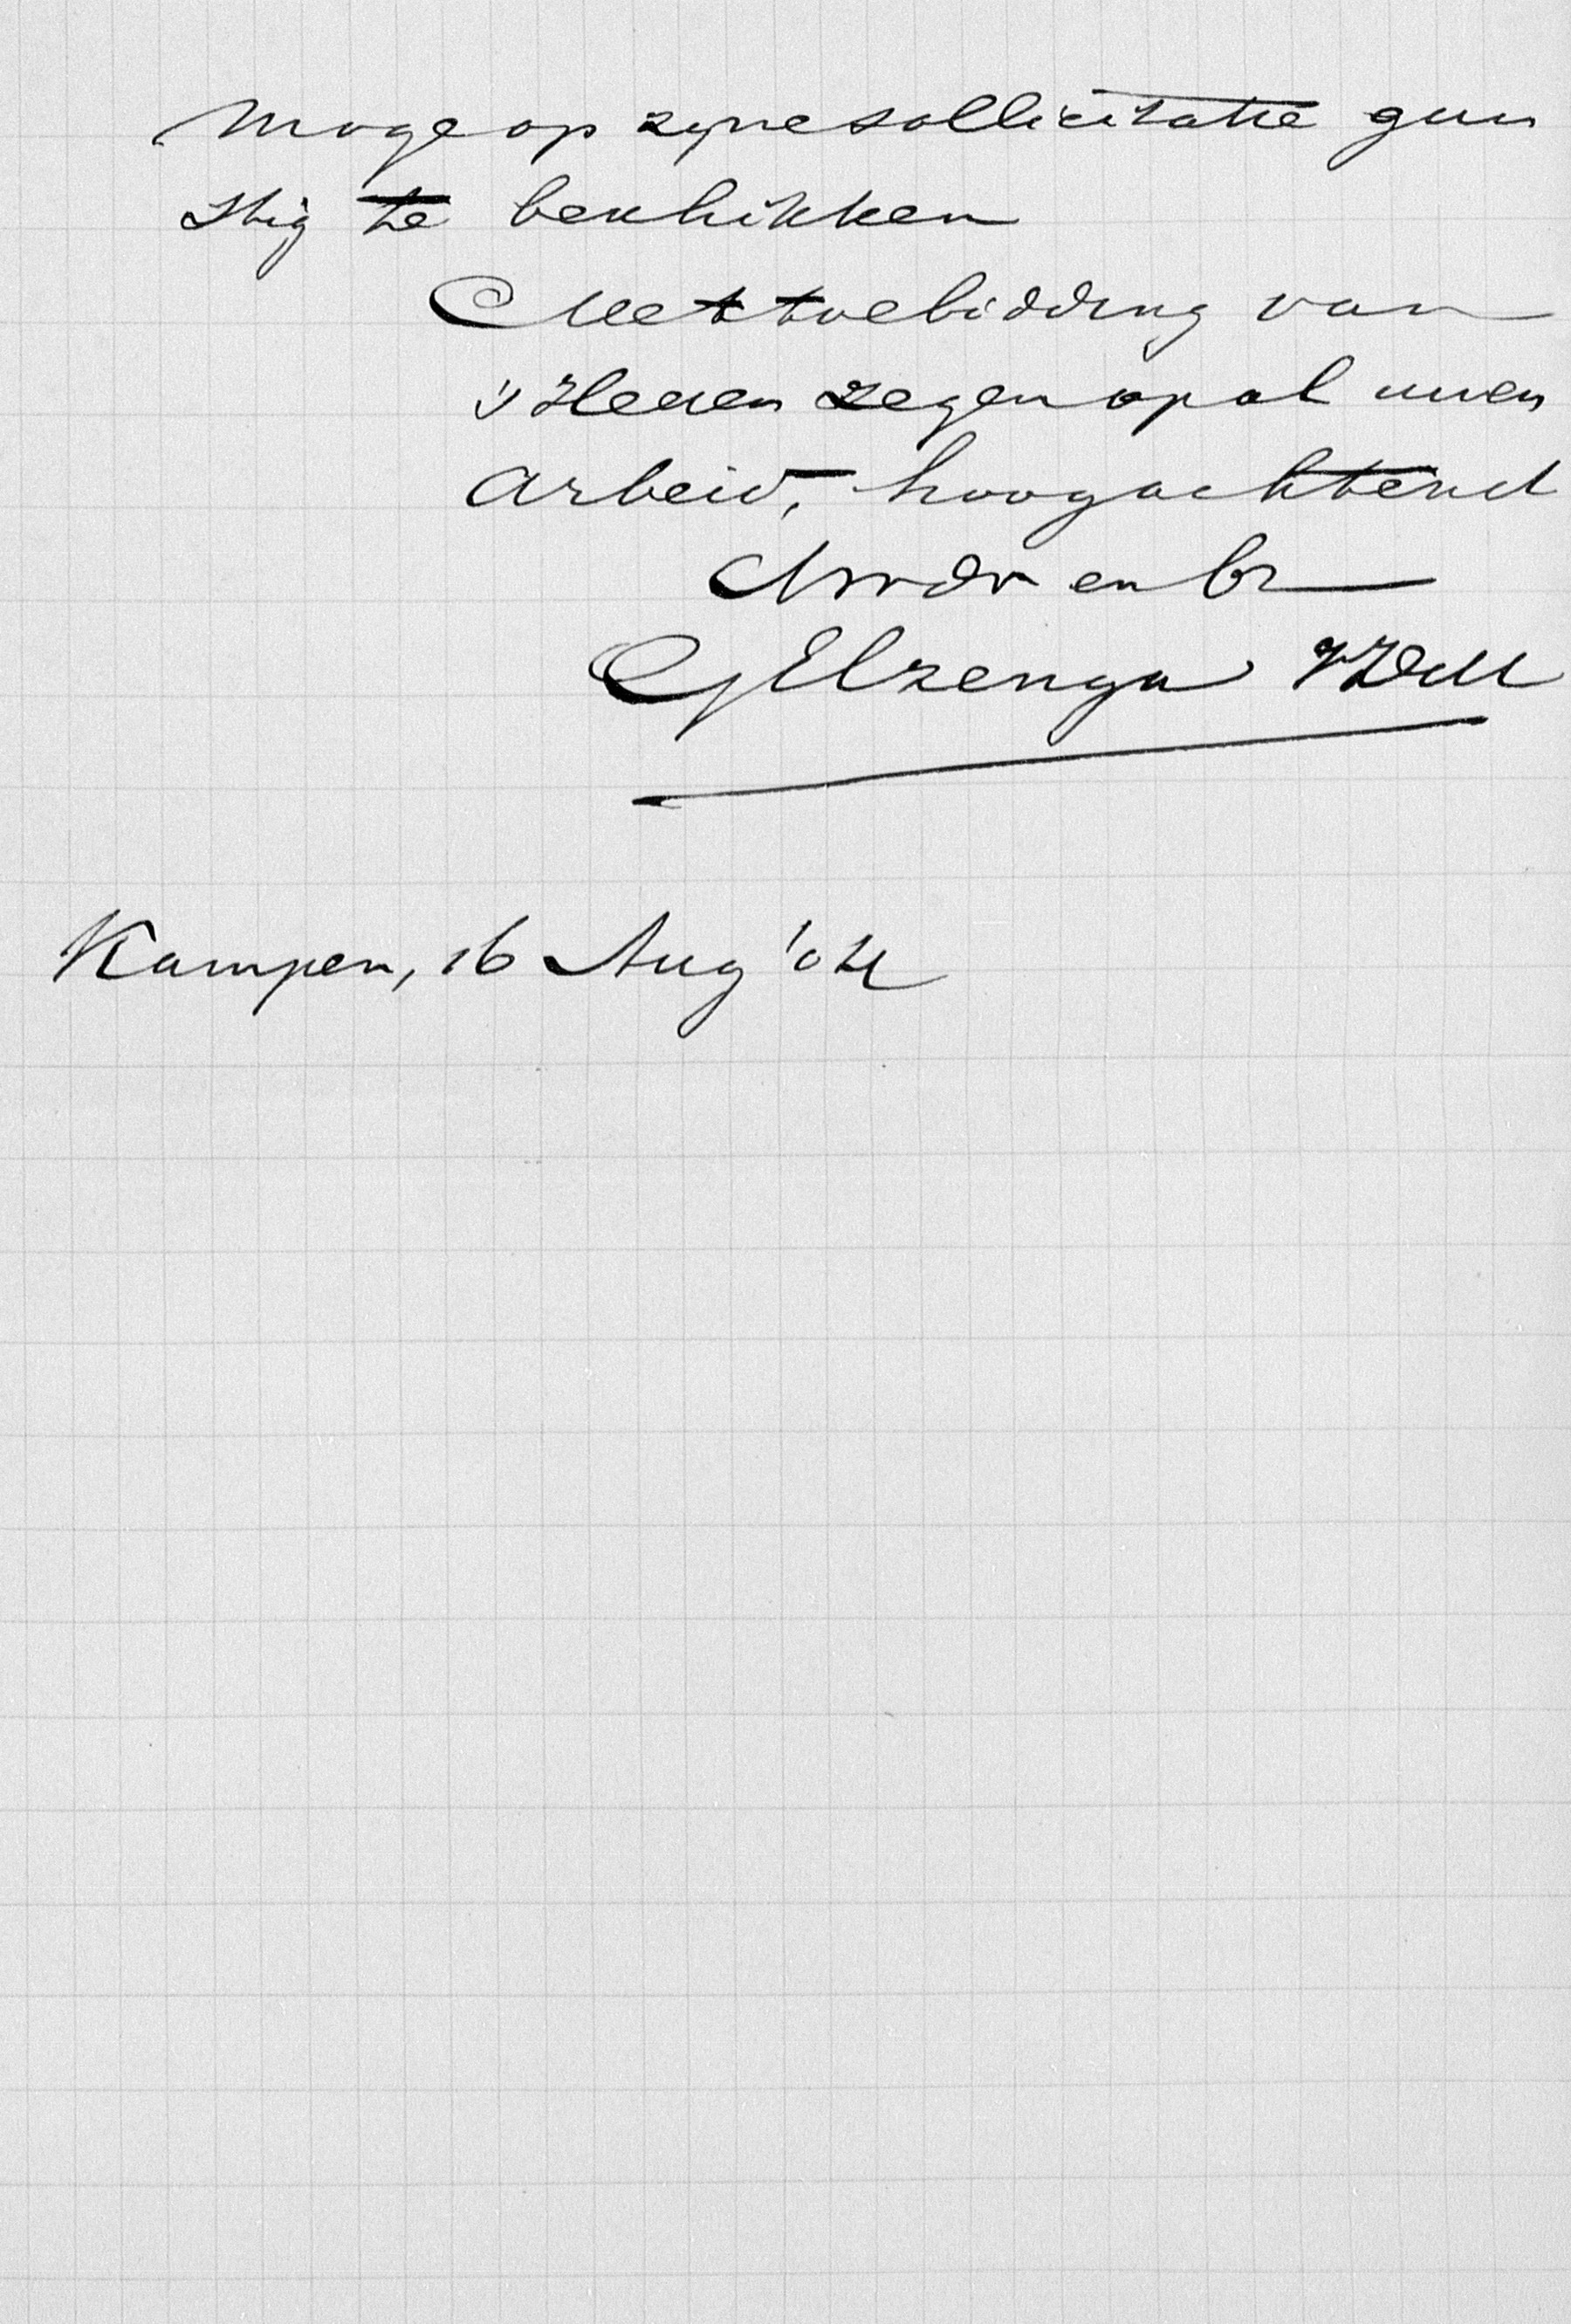 moge op zyne sollicitatie gun
stig te beschikken
Met toebidding van
's Heeren zegen op al uwen
arbeid, hoogachtend
Uw dv en br
G Elzenga
Kampen, 16 Aug '04